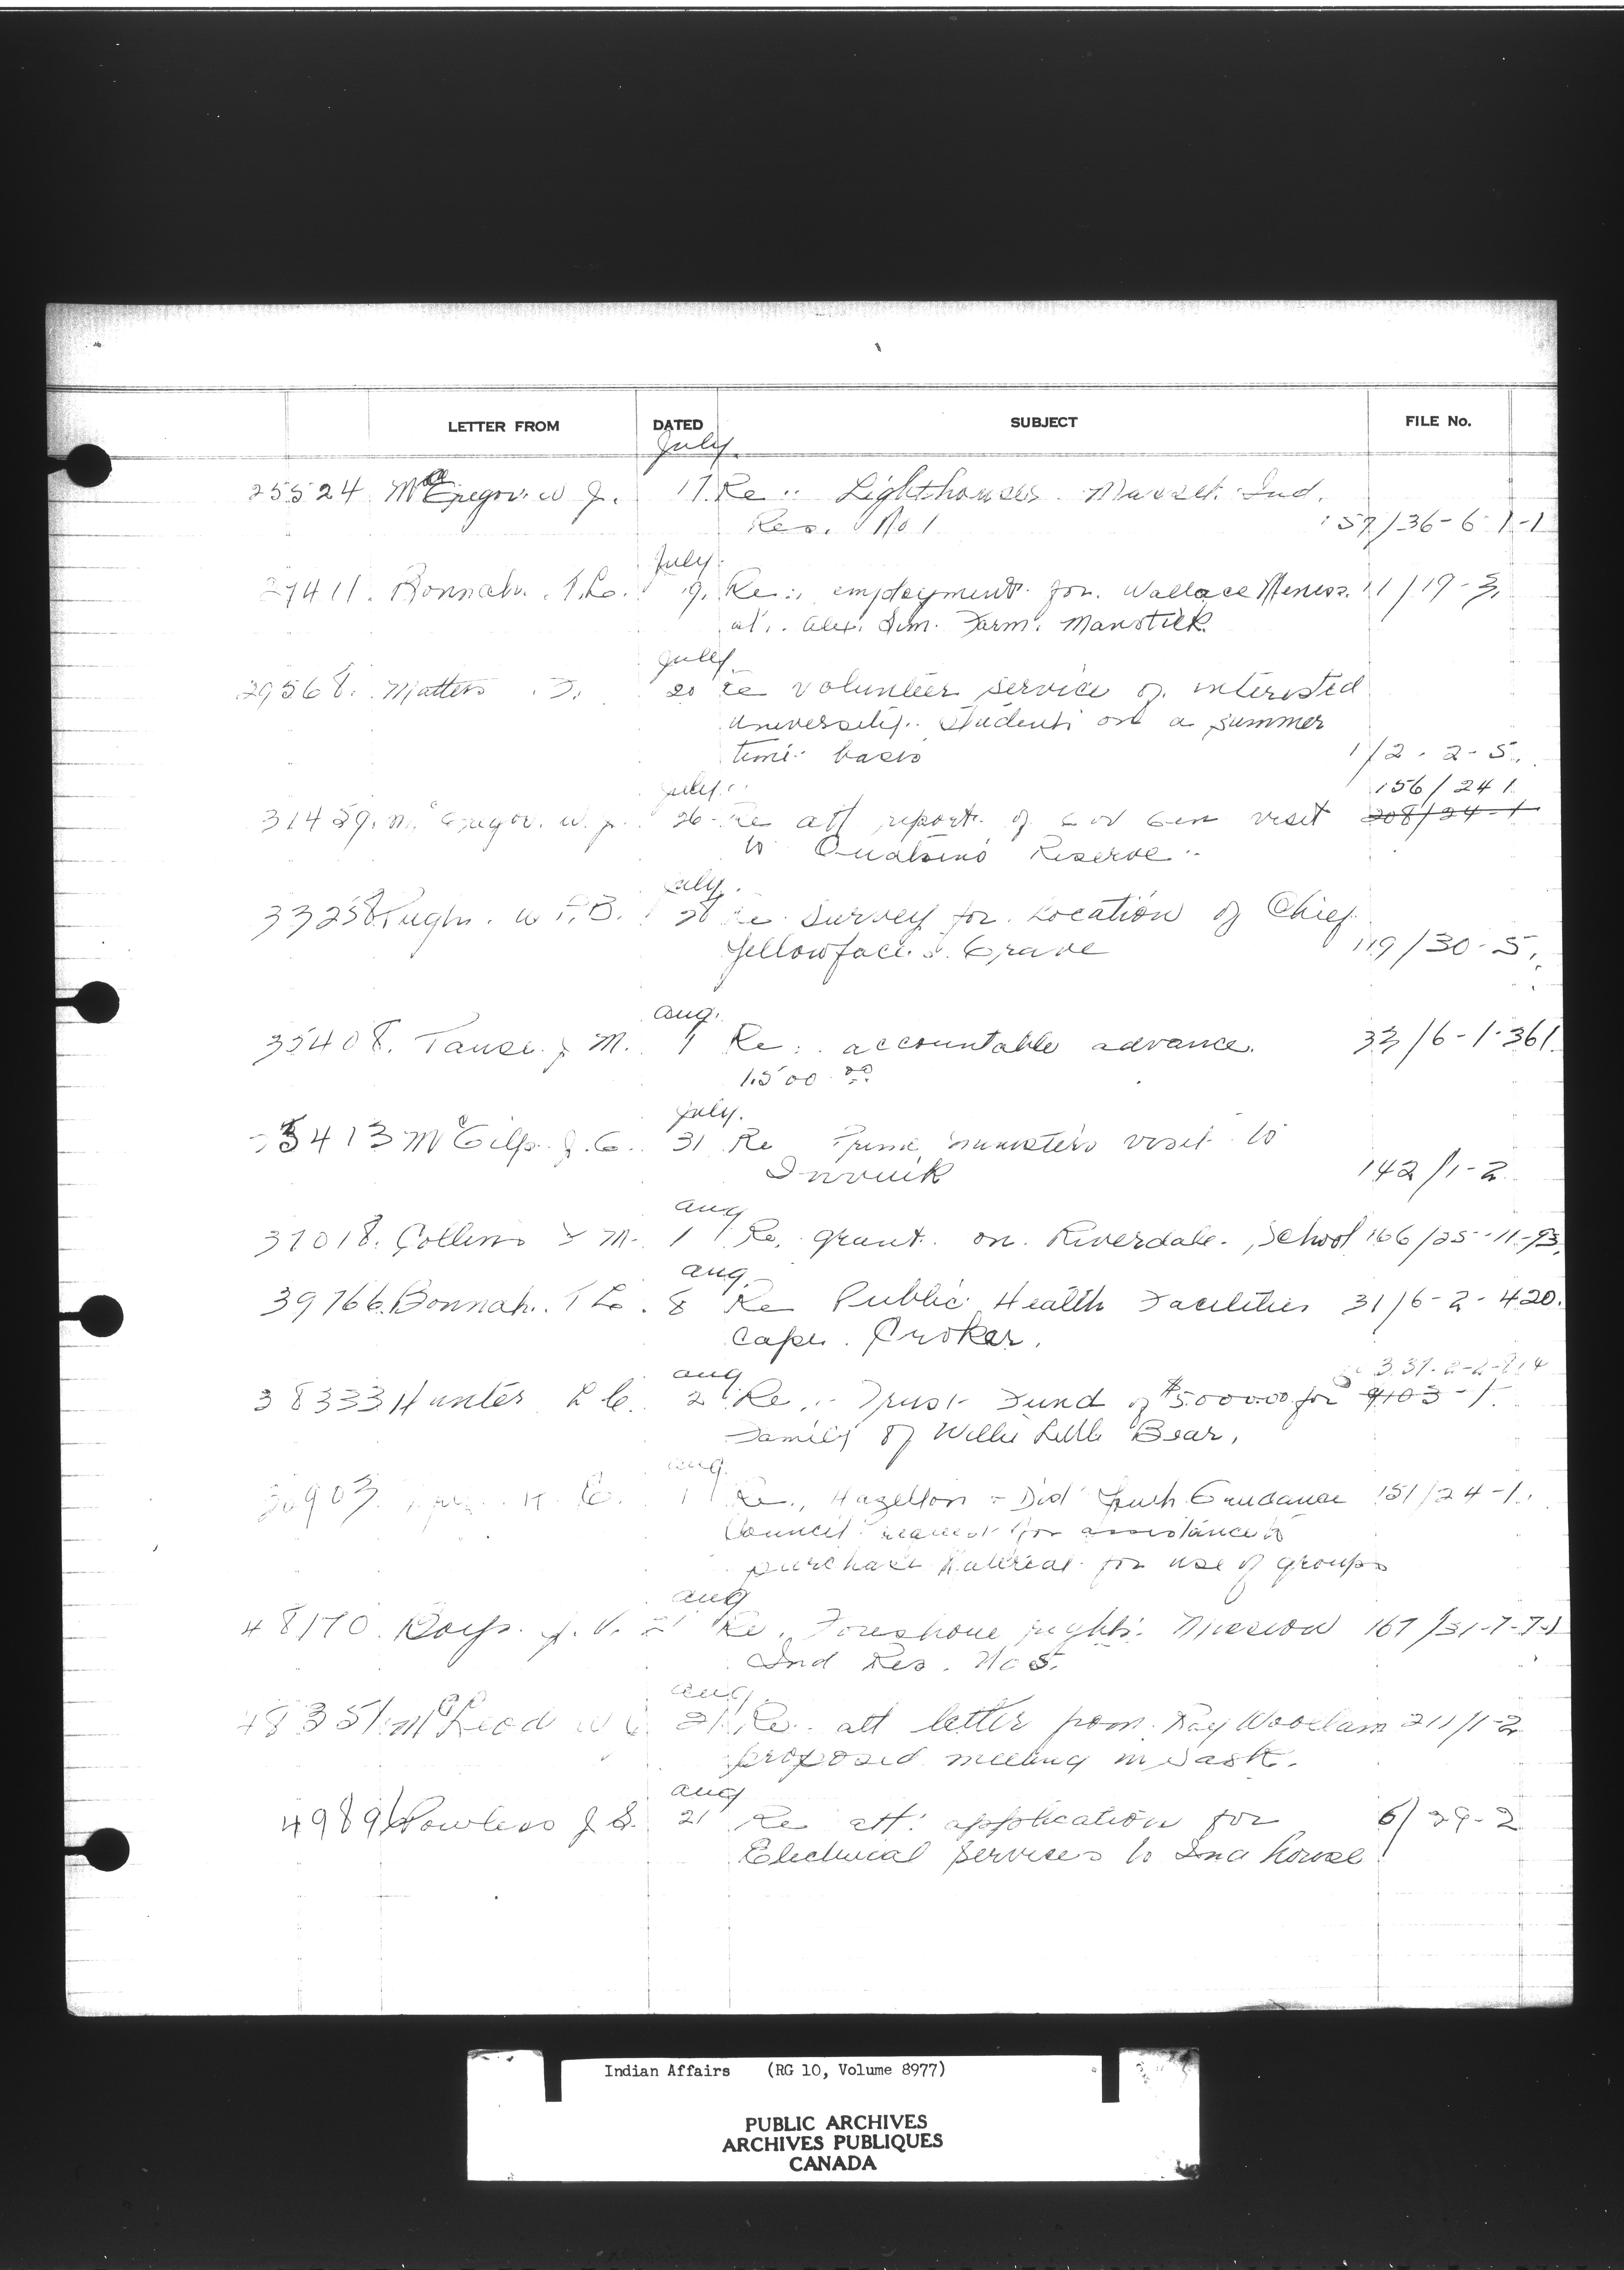 LETTER FROM DATED SUBJECT FILE No.
July
25524 McGregor. W J. 17. Re: Lighthouses. Masset. Ind.
Res. No 1 157/36-6-1-1
July
27411. Bonnah. T.L. 19. Re: employment for. Wallace 11/19-3.
at. Alex. Sim. Farm. Manotick
July
29568. Matters 20 Re volunteer service of interested
university. students on a summer
time basis 1/2-2-5.
July 156/24 1
31459. McGregor. W. J. 26 Re att report of Gov Gen visit 208/24-1
to Quatsino Reserve
July.
33258 Pugh. W P.B. 28 Re Survey for Location of Chief
Yellowface's Grave 119/30-5.
Aug.
35408. J M. 1 Re: accountable advance. 33/6-1-361
1500.00
July.
35413 McGilp. J. G. 31 Re Prime Ministers visit to
Inuvik 142/1-2
Aug
37018. Collins M. 1 Re. grant. on. Riverdale. School 166/25-11-93.
Aug.
39766. Bonnah. T L. 8 Re Public Health Facilities 31/6-2-420.
Cape. Croker.
Aug
38333 Hunter L C. 2 Re. Trust Fund of $5000.00 for 9103-1
Family of Willie Little Bear.
Aug.
1 Re. Hazelton Dist Guidance 151/24-1.
Council request for assistance to
purchase Material for use of groups
Aug
48170. Boys. J. V. 21 Re. Foreshore rights. Mission 167/31-7-7-1
Ind Res. No 5.
Aug.
48351. McLeod W C 21 Re. att letter from. Ray Woollam 211/1-2
proposed meeting in Sask.
Aug
49891 Powless J D. 21 Re att: application for 6/29-2
Electrical Services to Ind house
Indian Affairs (RG 10, Volume 8977)
PUBLIC ARCHIVES
ARCHIVES PUBLIQUES
CANADA